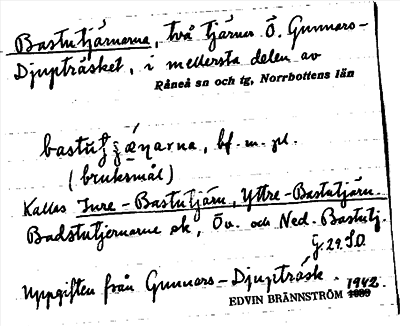 Bastutjärnarna, två tjärnar Ö. Gunnars-
Djupträsket, i mellersta delen av
Råneå sn och tg, Norrbottens län
bf. m. pl.
(bruksmål)
Kallas Inre-Bastutjärn, Yttre-Bastutjärn.
Badstutjernarne ek, Öv. och Ned. Bastutj.
Uppgiften från Gunnars-Djupträsk.
EDVIN BRÄNNSTRÖM 1942.